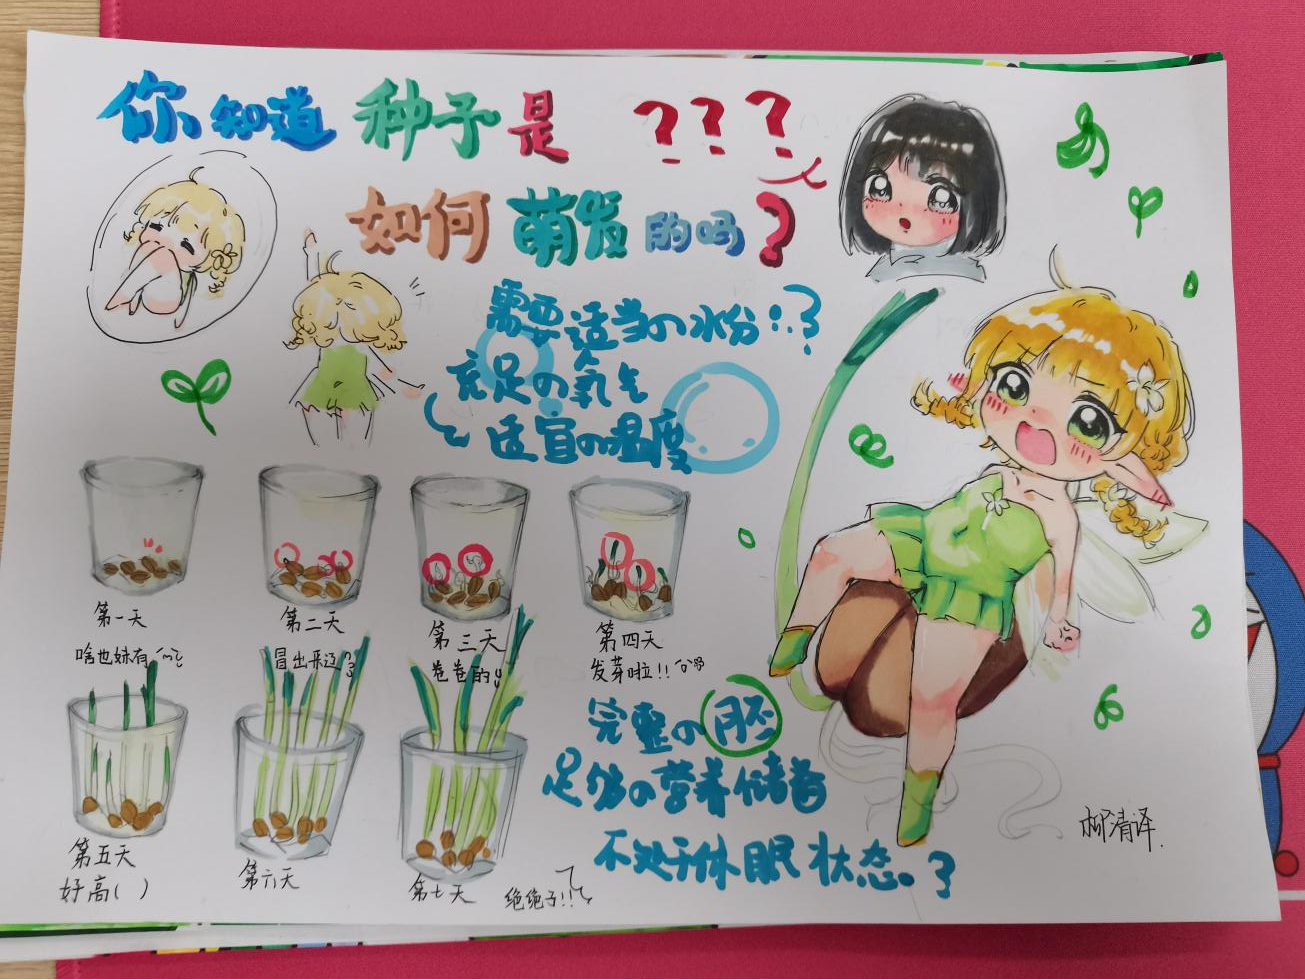 你知道种子是???
如何萌发的吗?
需要适当の水份:.?
充足の氧气
适宜の温度
第一天
啥也妹有
第二天
冒出来辽??
第三天
卷卷的
第四天
发芽啦!!
第五天
好高( )
第六天
第七天
绝绝子!!
完整の胚
足够の营养储备
不处于休眠状态。?
柳清译.